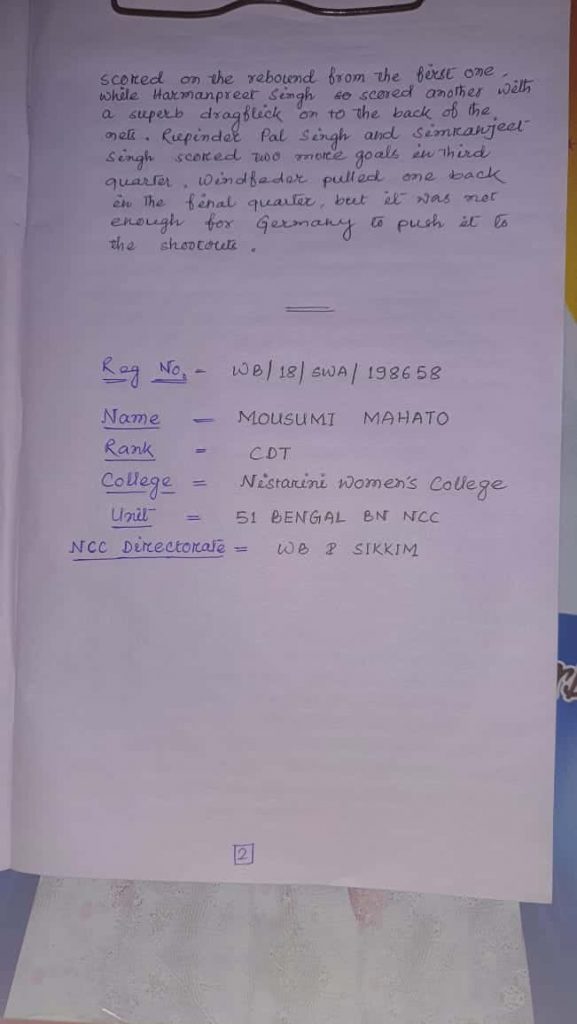 scored on the rebound from the first one,
while Harmanpreet Singh so scored another with
a superb dragflick on to the back of the
nets. Rupinder Pal Singh and Simranjeet
Singh scored two more goals in third
quarter. Windfeder pulled one back
in the final quarter, but it was not
enough for Germany to push it to
the shootouts.
Reg No. - WB/18/SWA/198658
Name - MOUSUMI MAHATO
Rank - CDT
College = Nistarini Women's College
Unit = 51 BENGAL BN NCC
NCC Directorate = WB & SIKKIM
2